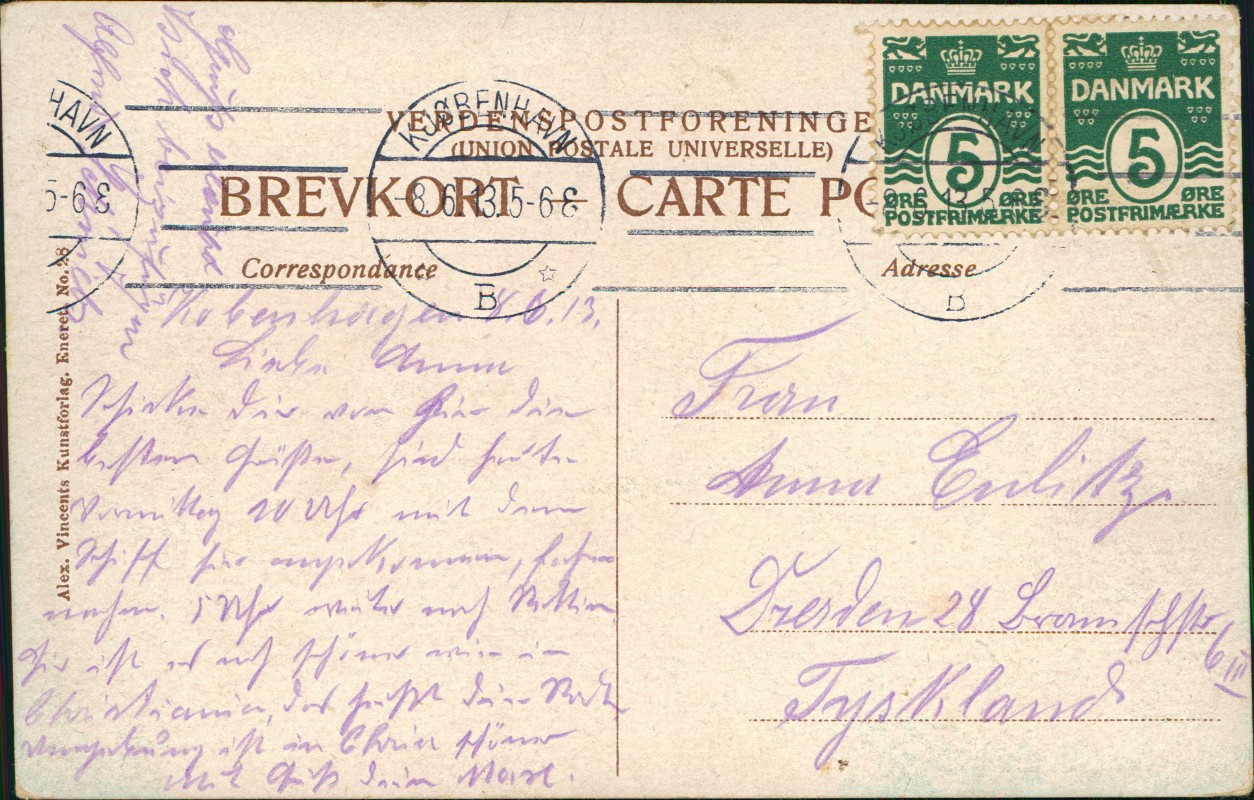 VERDENSPOSTFORENINGE
(UNION POSTALE UNIVERSELLE)
BREVKORT — CARTE PO
Correspondance
Adresse
DANMARK
5
ØRE ØRE
POSTFRIMÆRKE
DANMARK
5
ØRE ØRE
POSTFRIMÆRKE
HAVN
5-6 E
KJØBENHAVN
-8.6.13.5-6 E
B
KJØBENHAVN
-8.6.13.5-6 E
B
Alex. Vincents Kunstforlag. Eneret No. 28
Kobenhagen 8.6.13.
Liebe Anna
Schicke Dir von hier die
besten Grüße, sind heute
Vormittag 10 Uhr mit dem
Schiff hier angekommen, fahren
nachm. 5 Uhr weiter nach Stettin
hier ist es noch schöner wie in
Christiania, das heißt die Stadt
Umgebung ist in Chris schöner
Mit Gruß Dein Max.
Frau
Anna Enlitz
Dresden 28
6 III
Tyskland